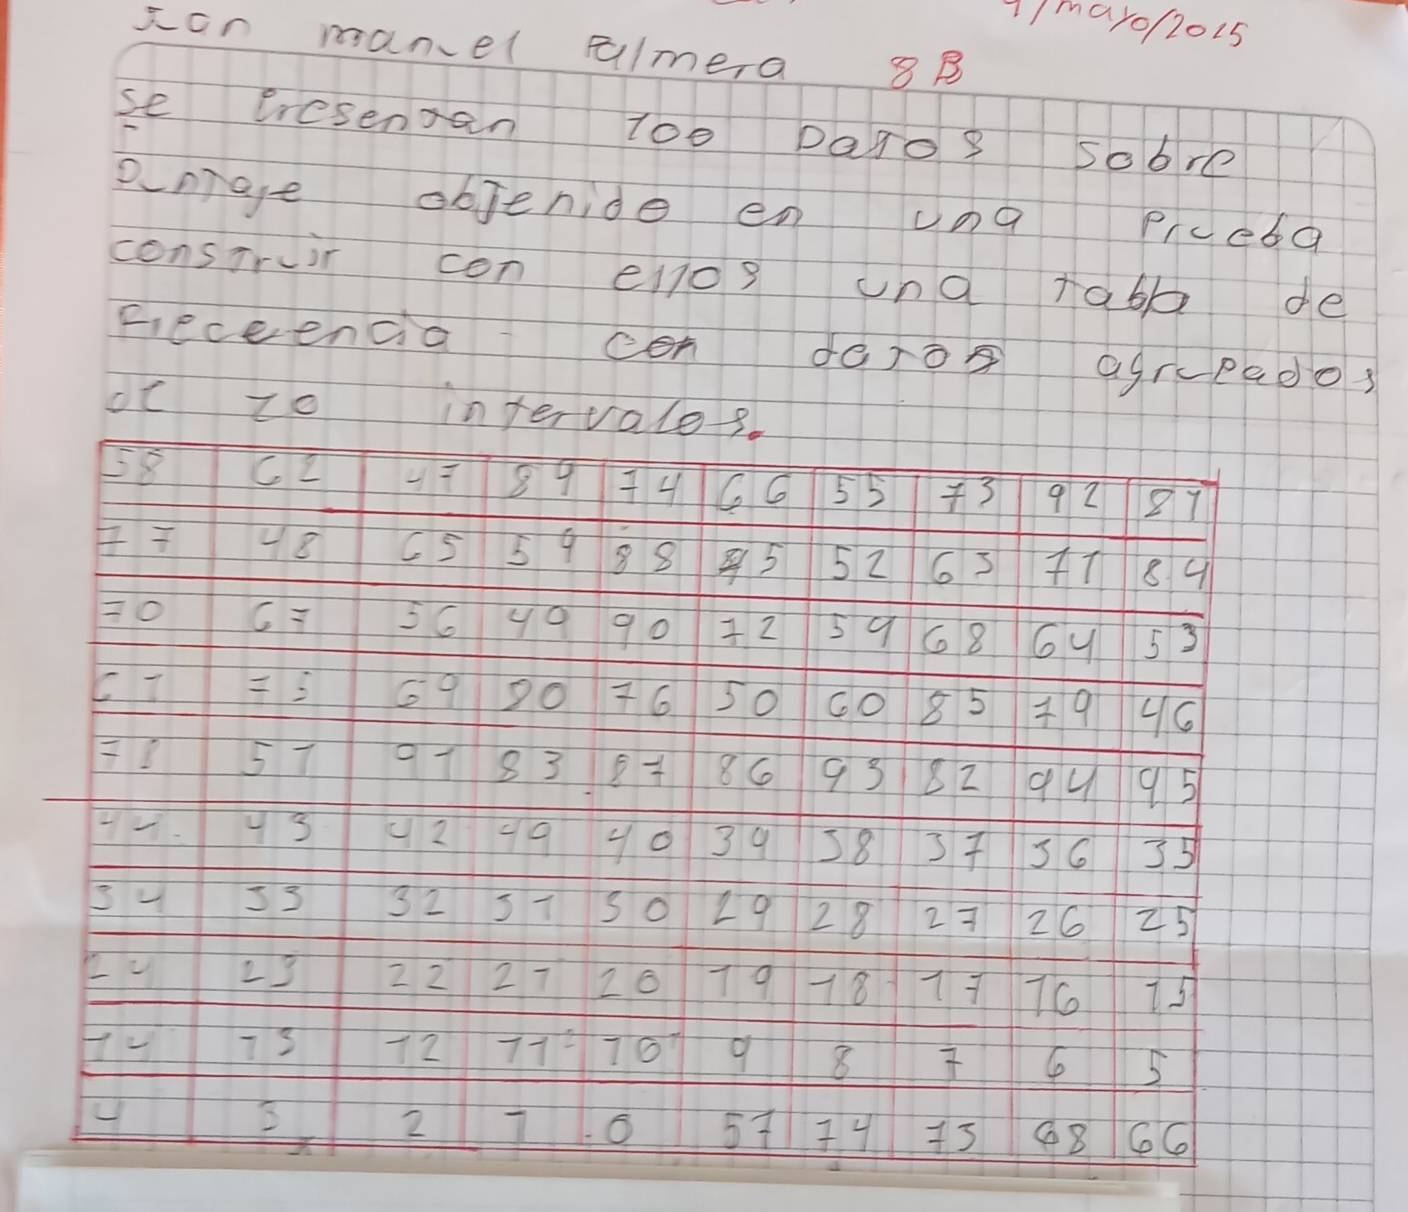 9/mayo/2015
manuel Palmera 8B
se Presentan 100 Datos sobre
Puntaje obtenido en una Prueba
construir con ellos una tabla de
con datos agrupados
10 intervalos.
58 62 47 89 74 66 55 73 92 81
77 48 65 59 88 45 52 63 71 84
70 67 56 49 90 72 59 68 64 53
61 75 69 80 76 50 60 85 79 46
78 51 91 83 87 86 93 82 94 95
44 43 42 49 40 39 38 37 36 35
34 33 32 31 30 29 28 27 26 25
24 23 22 21 20 19 18 17 16 15
14 13 12 11 10 9 8 7 6 5
4 3 2 1 0 57 74 73 68 66